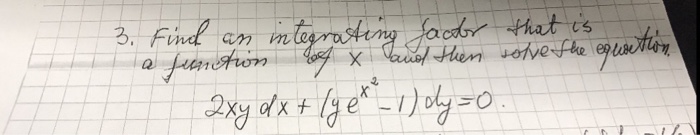 3. Find an integrating factor that is
a function of x and then solve the equation
2xy dx + (ye^{x^2} - 1) dy = 0.